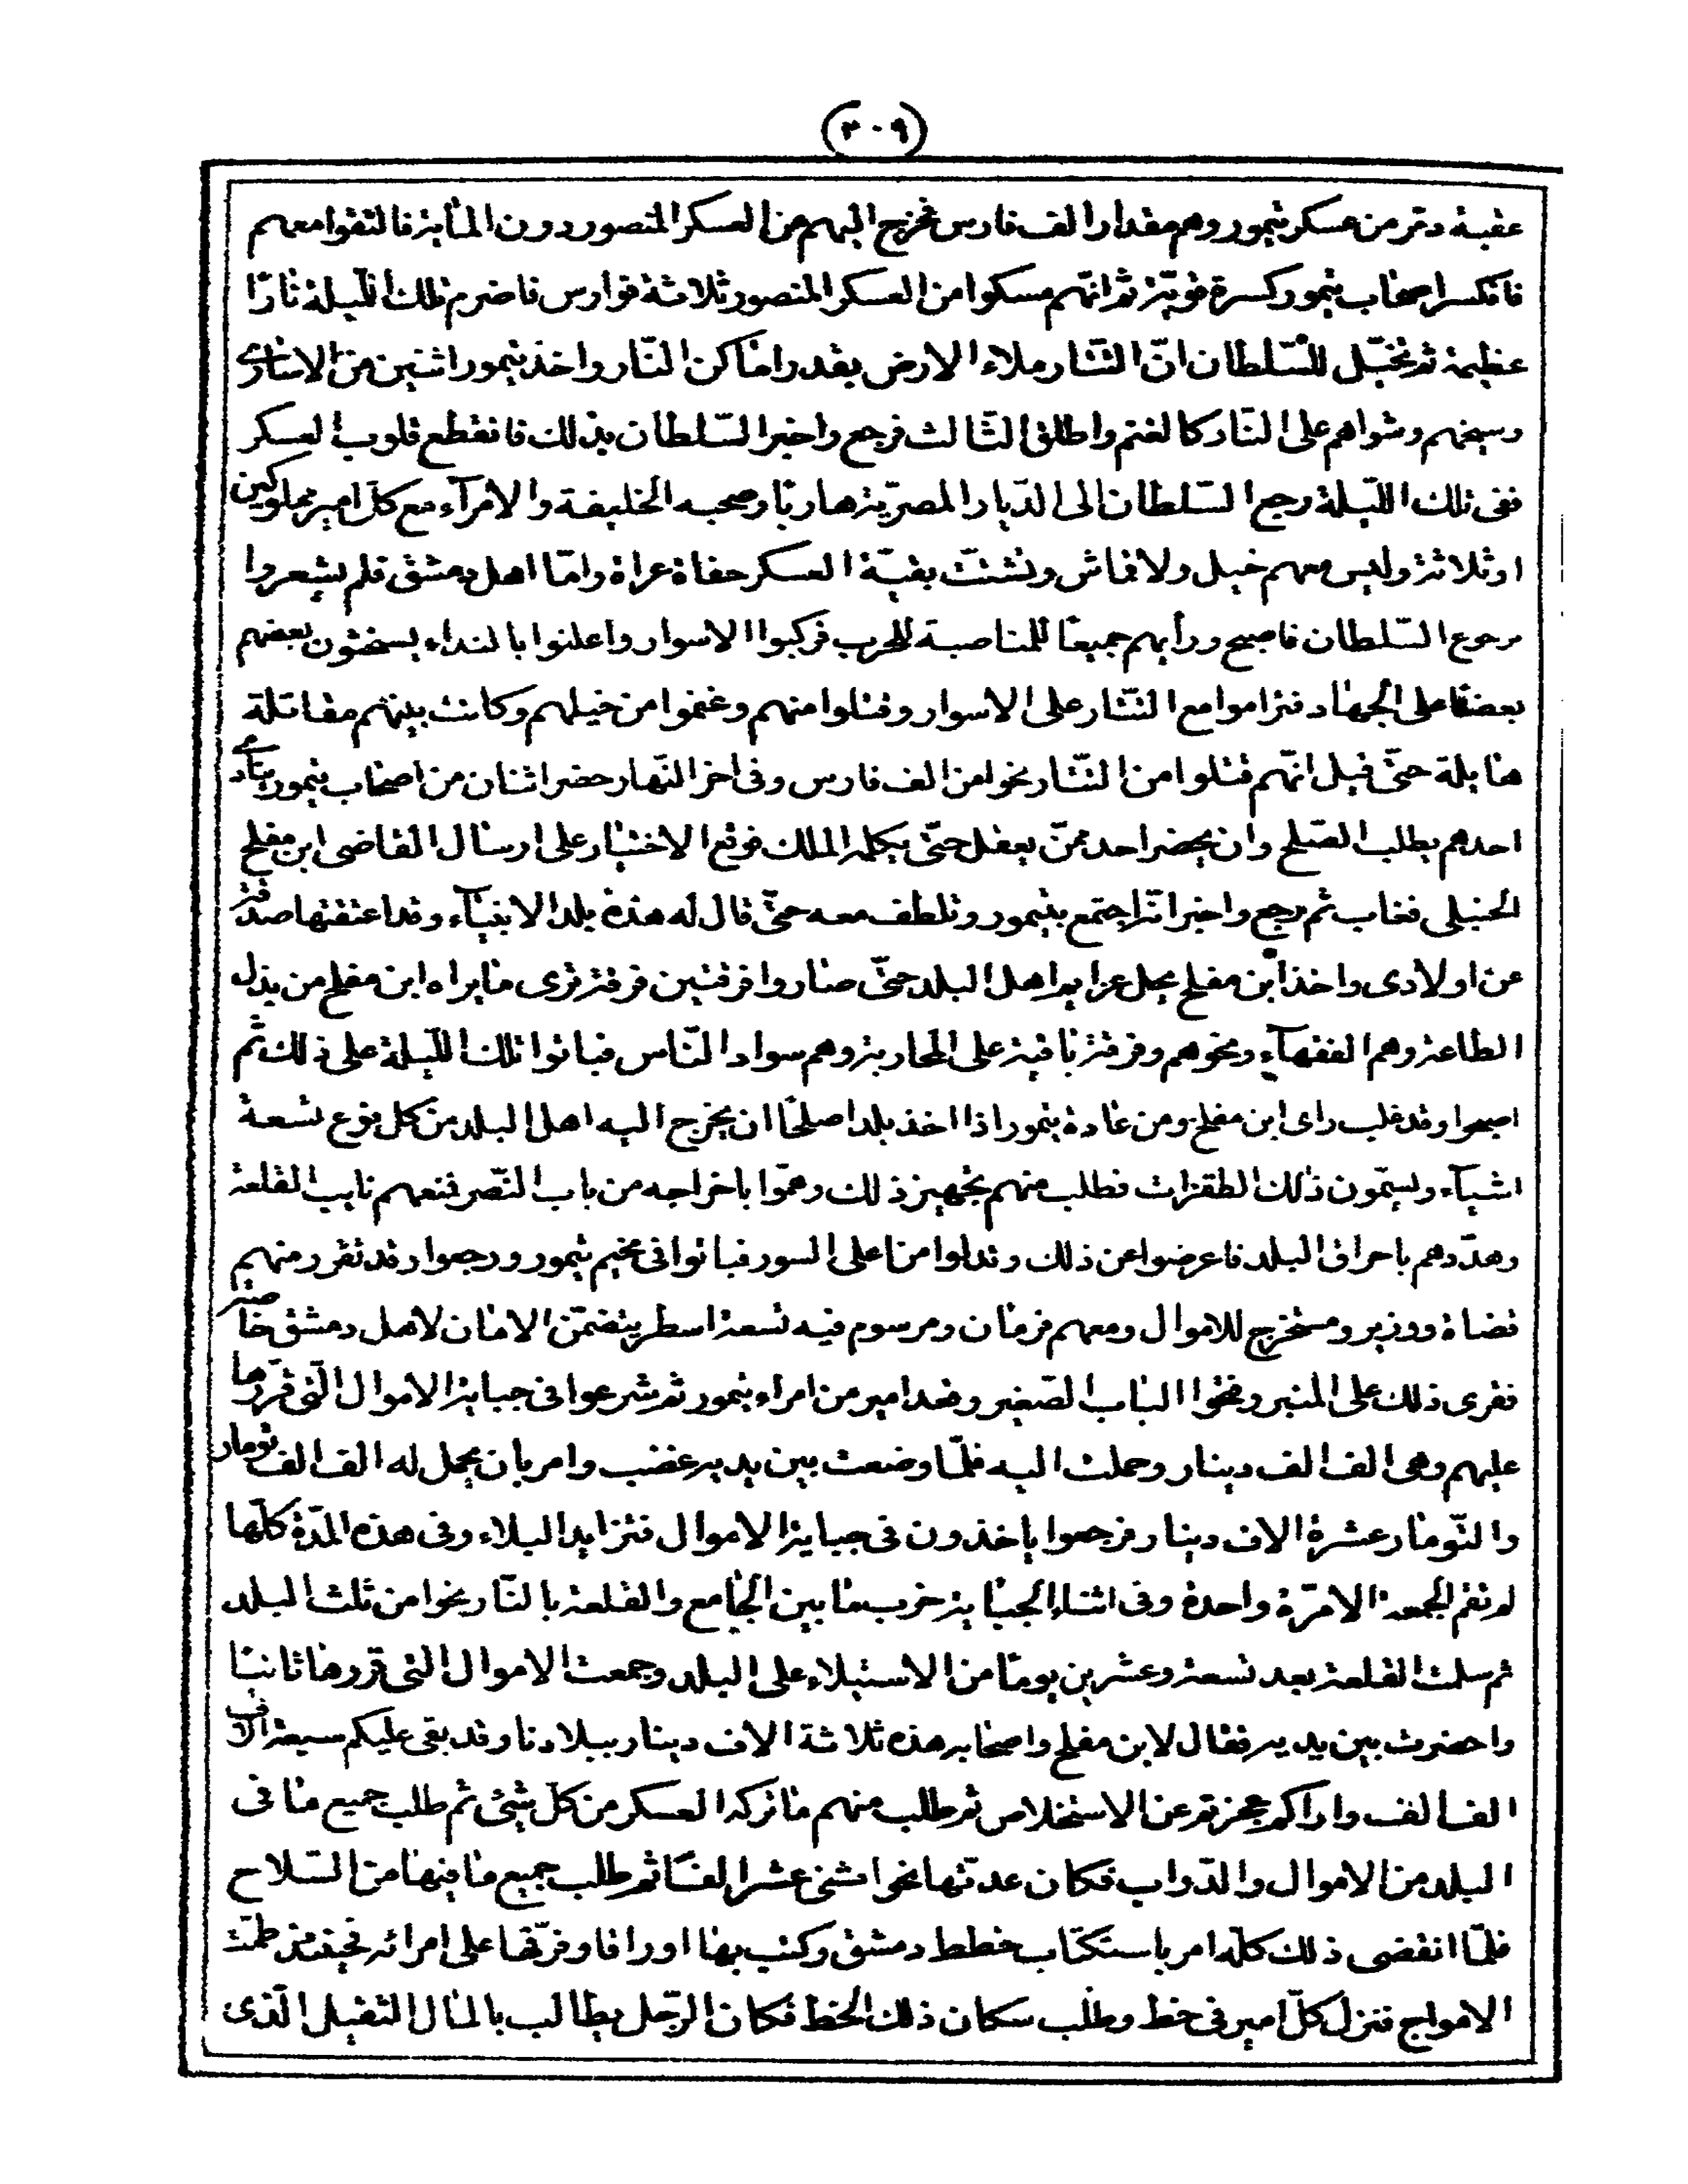 (٣٠٩)
عقبة دمّر من عسكر تيمور وهم مقدار الف فارس فخرج اليهم من العسكر المنصور دون المأية فالتقوا معهم
فانكسر اصحاب تيمور كسرة قويّة ثم انّهم مسكوا من العسكر المنصور ثلاثة فوارس فاضرم تلك اللّيلة نارًا
عظيمة ثم تخيّل للسّلطان انّ التّتار ملاء الارض بقدر اماكن النّار واخذ تيمور اثنين من الاسارى
وسيخهم وشواهم على النّار كالغنم واطلق الثّالث فرجع واخبر السّلطان بذلك فانقطع قلوب العسكر
ففى تلك اللّيلة رجع السّلطان الى الدّيار المصريّة هاربًا وصحبه الخليفة والامرآء مع كلّ امير مملوكين
او ثلاثة وليس معهم خيل ولا قماش وتشتّت بقيّة العسكر حفاة عراة وامّا اهل دمشق فلم يشعروا
برجوع السّلطان فاصبح ورأيهم جميعًا للمناصبة للحرب فركبوا الاسوار واعلنوا بالنداء يستحثون بعضهم
بعضًا على الجهاد فتراموا مع التّتار على الاسوار وقتلوا منهم وغنموا من خيلهم وكانت بينهم مقاتلة
هايلة حتّى قيل انّهم قتلوا من التّتار نحوا من الف فارس وفى اخر النّهار حضر اثنان من اصحاب تيمور ينادى
احدهم بطلب الصّلح وان يحضر احد ممّن يعقل حتّى يكلمه الملك فوقع الاختيار على ارسال القاضى ابن مفلح
الحنبلى فغاب ثم رجع واخبر انّه اجتمع بتيمور وتلطف معه حتّى قال له هذه بلد الانبيآء وقد اعتقتها صدقة
عن اولادى واخذ ابن مفلح يحل عزايم اهل البلد حتّى صاروا فرقتين فرقة ترى ما يراه ابن مفلح من بذل
الطاعة وهم الفقهآء ونحوهم وفرقة باقية على المحاربة وهم سواد النّاس فباتوا تلك اللّيلة على ذلك ثمّ
اصبحوا وقد غلب راى ابن مفلح ومن عادة تيمور اذا اخذ بلدا صلحًا ان يخرج اليه اهل البلد من كل نوع تسعة
اشيآء ويسمّون ذلك الطقزات فطلب منهم تجهيز ذلك وهمّوا باخراجه من باب النّصر فمنعهم نايب القلعة
وهدّدهم باحراق البلد فاعرضوا عن ذلك وتدلوا من اعلى السور فباتوا فى مخيم تيمور ورجعوا وقد تقرر منهم
قضاة ووزير ومستخرج للاموال ومعهم فرمان ومرسوم فيه تسعة اسطر يتضمّن الامان لاهل دمشق خاصّة
فقرى ذلك على المنبر وفتحوا الباب الصّغير وقعد امير من امراء تيمور ثم شرعوا فى جباية الاموال الّتى قرّرها
عليهم وهى الف الف دينار وحملت اليه فلمّا وضعت بين يديه غضب وامر بان يحمل له الف الف تومار
والتّومار عشرة الاف دينار فرجعوا ياخذون فى جباية الاموال فتزايد البلاء وفى هذه المدّة كلّها
لم تقم الجمعة الا مرّة واحدة وفى اثناء الجباية خرب ما بين الجامع والقلعة بالنّار نحوا من ثلث البلد
ثم سلمت القلعة بعد تسعة وعشرين يومًا من الاستيلاء على البلد وجمعت الاموال التى قررها ثانيًا
واحضرت بين يديه فقال لابن مفلح واصحابه هذه ثلاثة الاف دينار ببلادنا وقد بقى عليكم سبعة الاف
الف الف واراكم عجزتم عن الاستخلاص ثم طلب منهم ما تركه العسكر من كلّ شئ ثم طلب جميع ما فى
البلد من الاموال والدّواب فكان عدتها نحوا مثنى عشر الفًا ثم طلب جميع ما فيها من السّلاح
فلمّا انقضى ذلك كلّه امر باستكتاب خطط دمشق وكتب بها اوراقا وفرّقها على امرائه فحينئذ طمّت
الامواج فنزل كلّ امير فى خط وطلب سكان ذلك الخط فكان الرّجل يطالب بالمال الثقيل الّذى